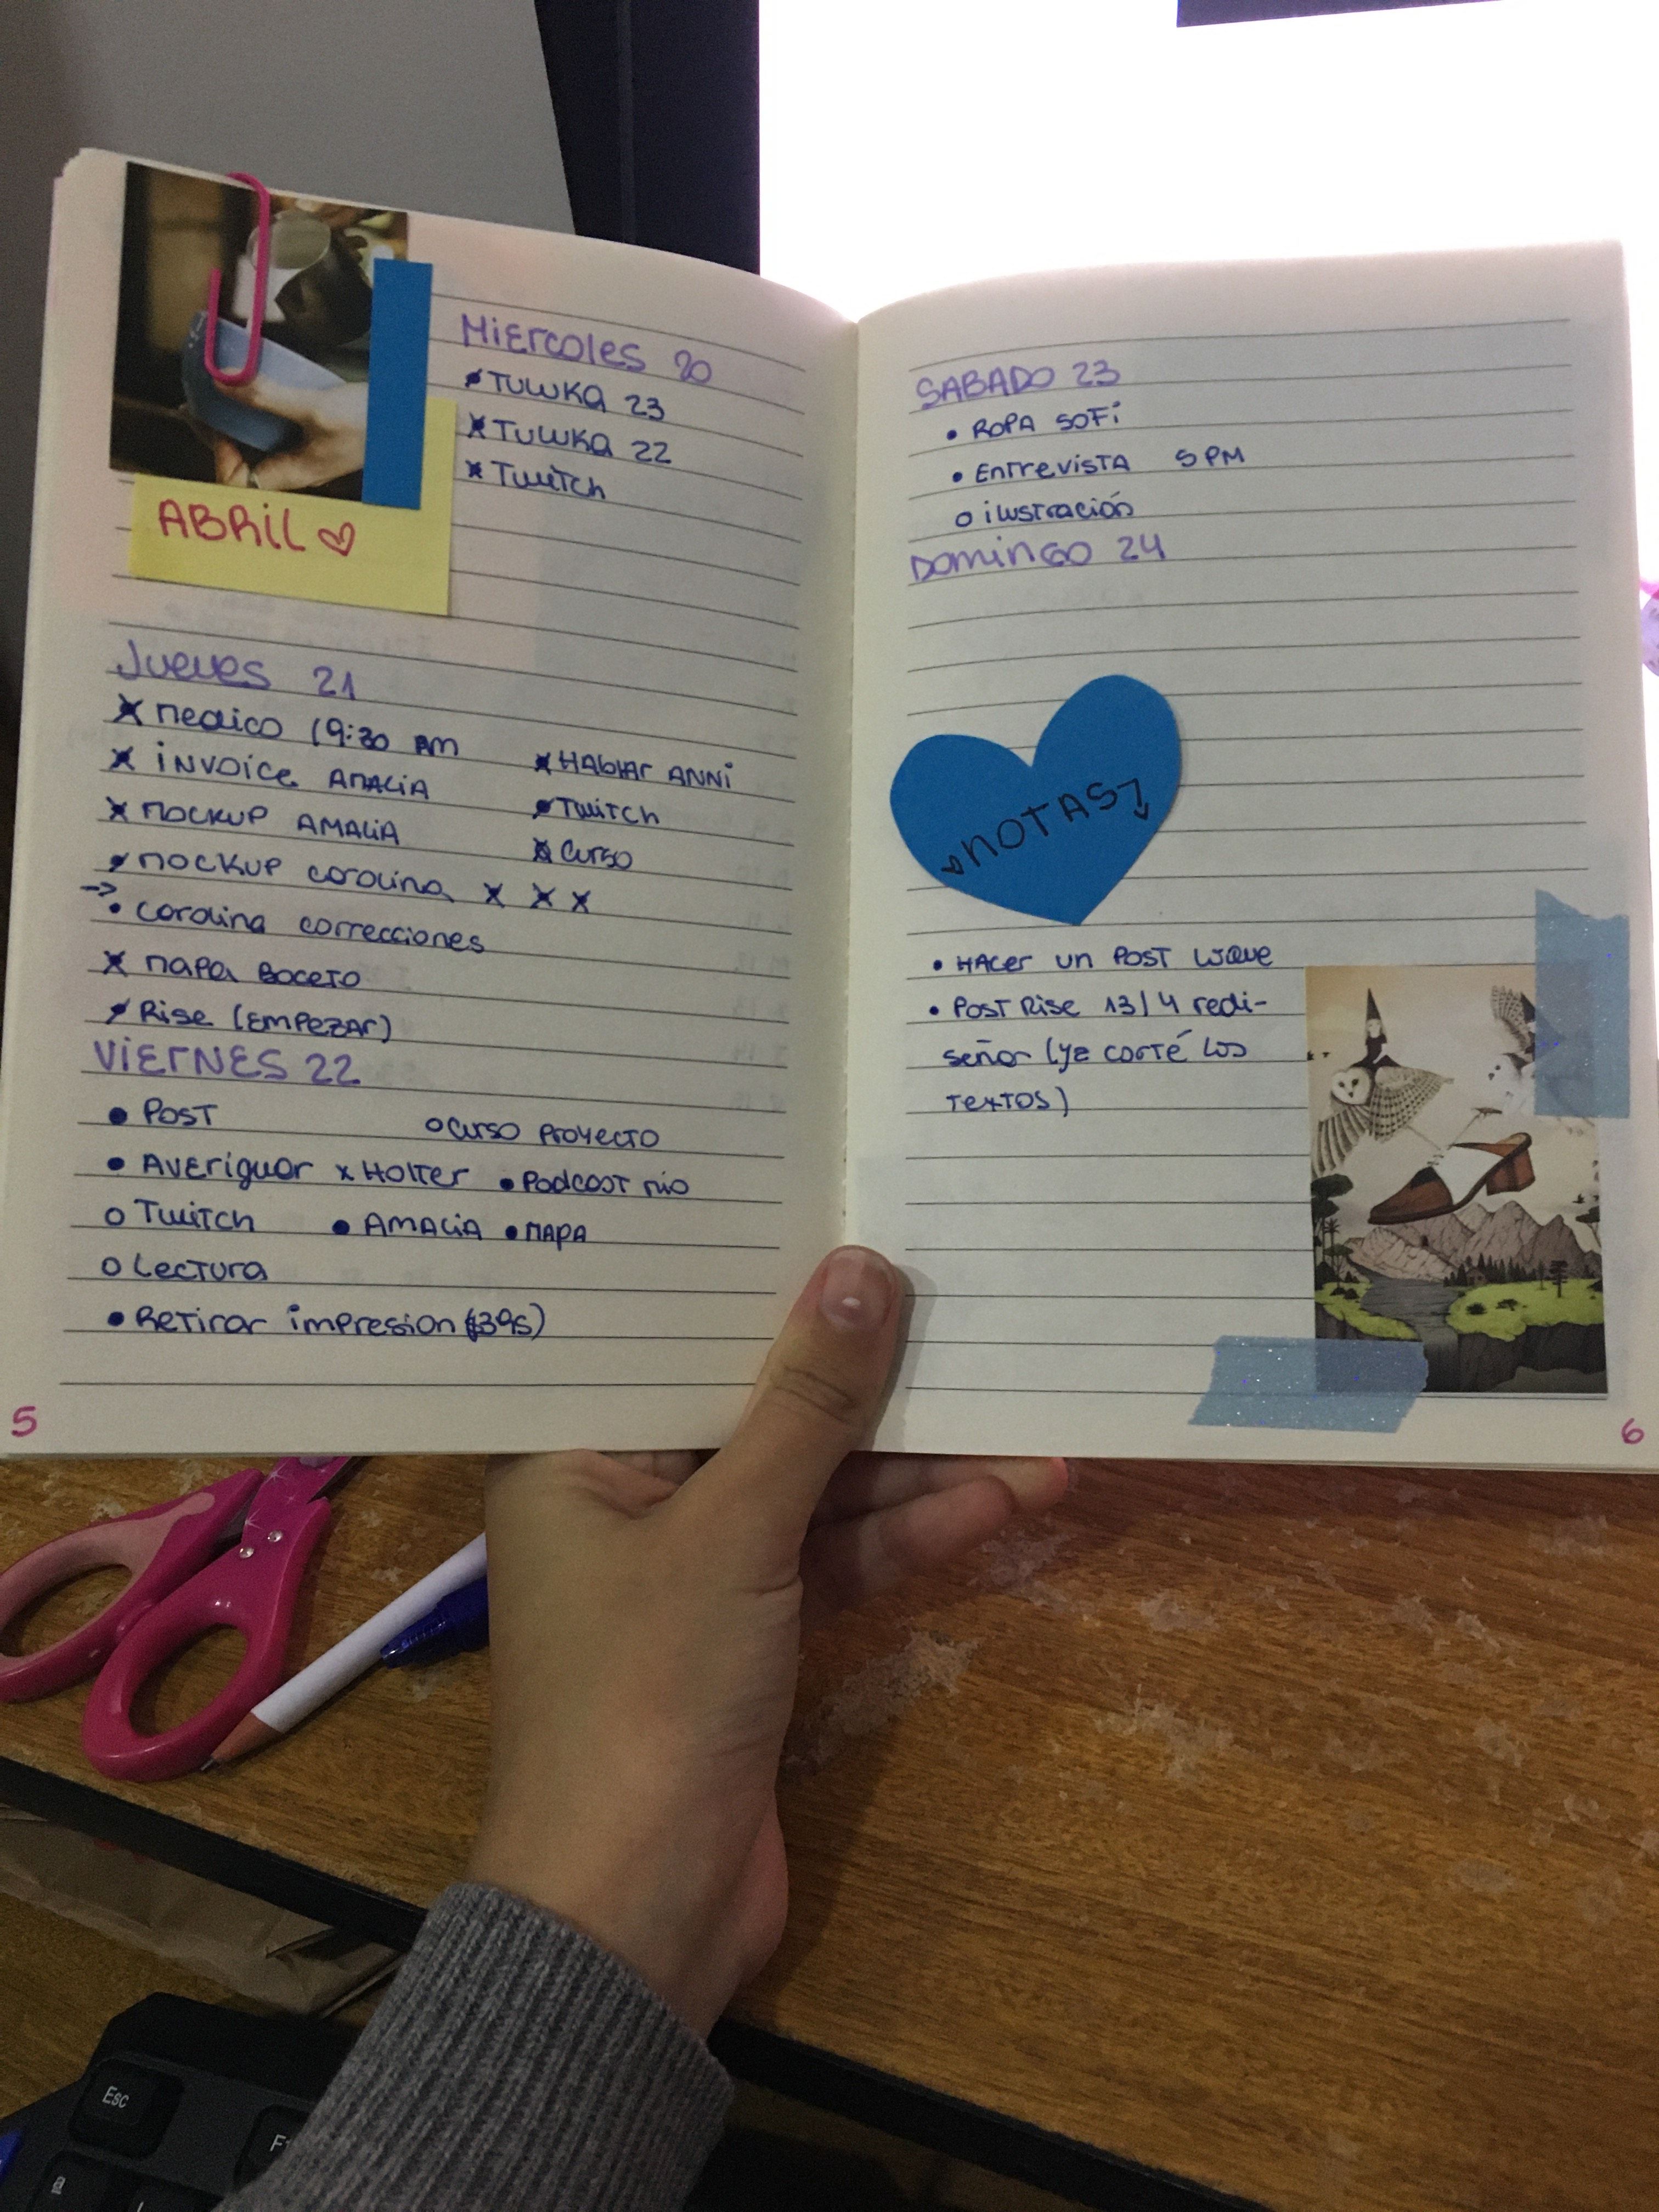 Miercoles 20
TUWKA 23
x TUWKA 22
x Twitch
ABRIL ♡
Jueves 21
x Medico 19:30 PM
x INVOICE AMALIA
x MOCKUP AMALIA
MOCKUP carolina x x x
→
• carolina correcciones
x MAPA BOCETO
Rise (EMPEZAR)
x HABLAR ANNI
Twitch
x CURSO
VIERNES 22
• POST
o CURSO PROYECTO
• AVERIGUAR x HOLTER • PODCAST MIO
o Twitch • AMALIA • MAPA
o Lectura
• RETIRAR IMPRESION
5
SABADO 23
• ROPA SOFI
• ENTREVISTA 5 PM
o ilustración
DOMINGO 24
NOTAS
• HACER UN POST
• POST RISE 13/4 redi-
señar (ya corté los
TEXTOS)
6
Esc
F1